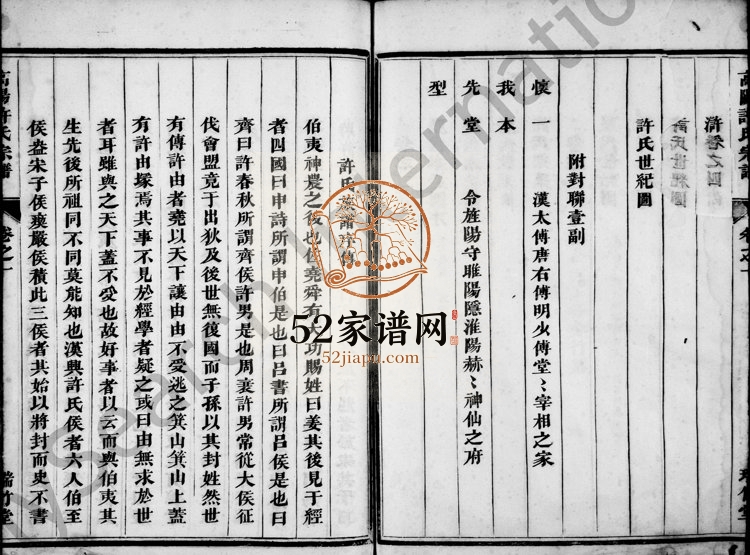 高陽許氏宗譜
卷之一
濟卷之四
許氏世紀圖
許氏世紀圖
附對聯壹副
懷一 漢太傅唐右傅明少傅堂〻宰相之家
我本
先堂 令旌陽守睢陽隱淮陽赫〻神仙之府
型
許氏
伯夷神農之後也佐堯舜有大功賜姓曰姜其後見于經
者四國曰申詩所謂申伯是也曰呂書所謂呂侯是也曰
齊曰許春秋所謂齊侯許男是也周衰許男常從大侯征
伐會盟竟于出狄及後世無復國而子孫以其封姓然世
有傳許由者堯以天下讓由由不受逃之箕山箕山上蓋
有許由塚焉其事不見於經學者疑之或曰由無求於世
者耳雖與之天下蓋不受也故好事者以云而與伯夷其
生先後所祖同不同莫能知也漢興許氏侯者六人伯至
侯盎宋子侯瘈嚴侯積此三侯者其始以將封而史不書
高陽許氏宗譜
卷之一
瑞竹堂
52家谱网
52jiapu.com